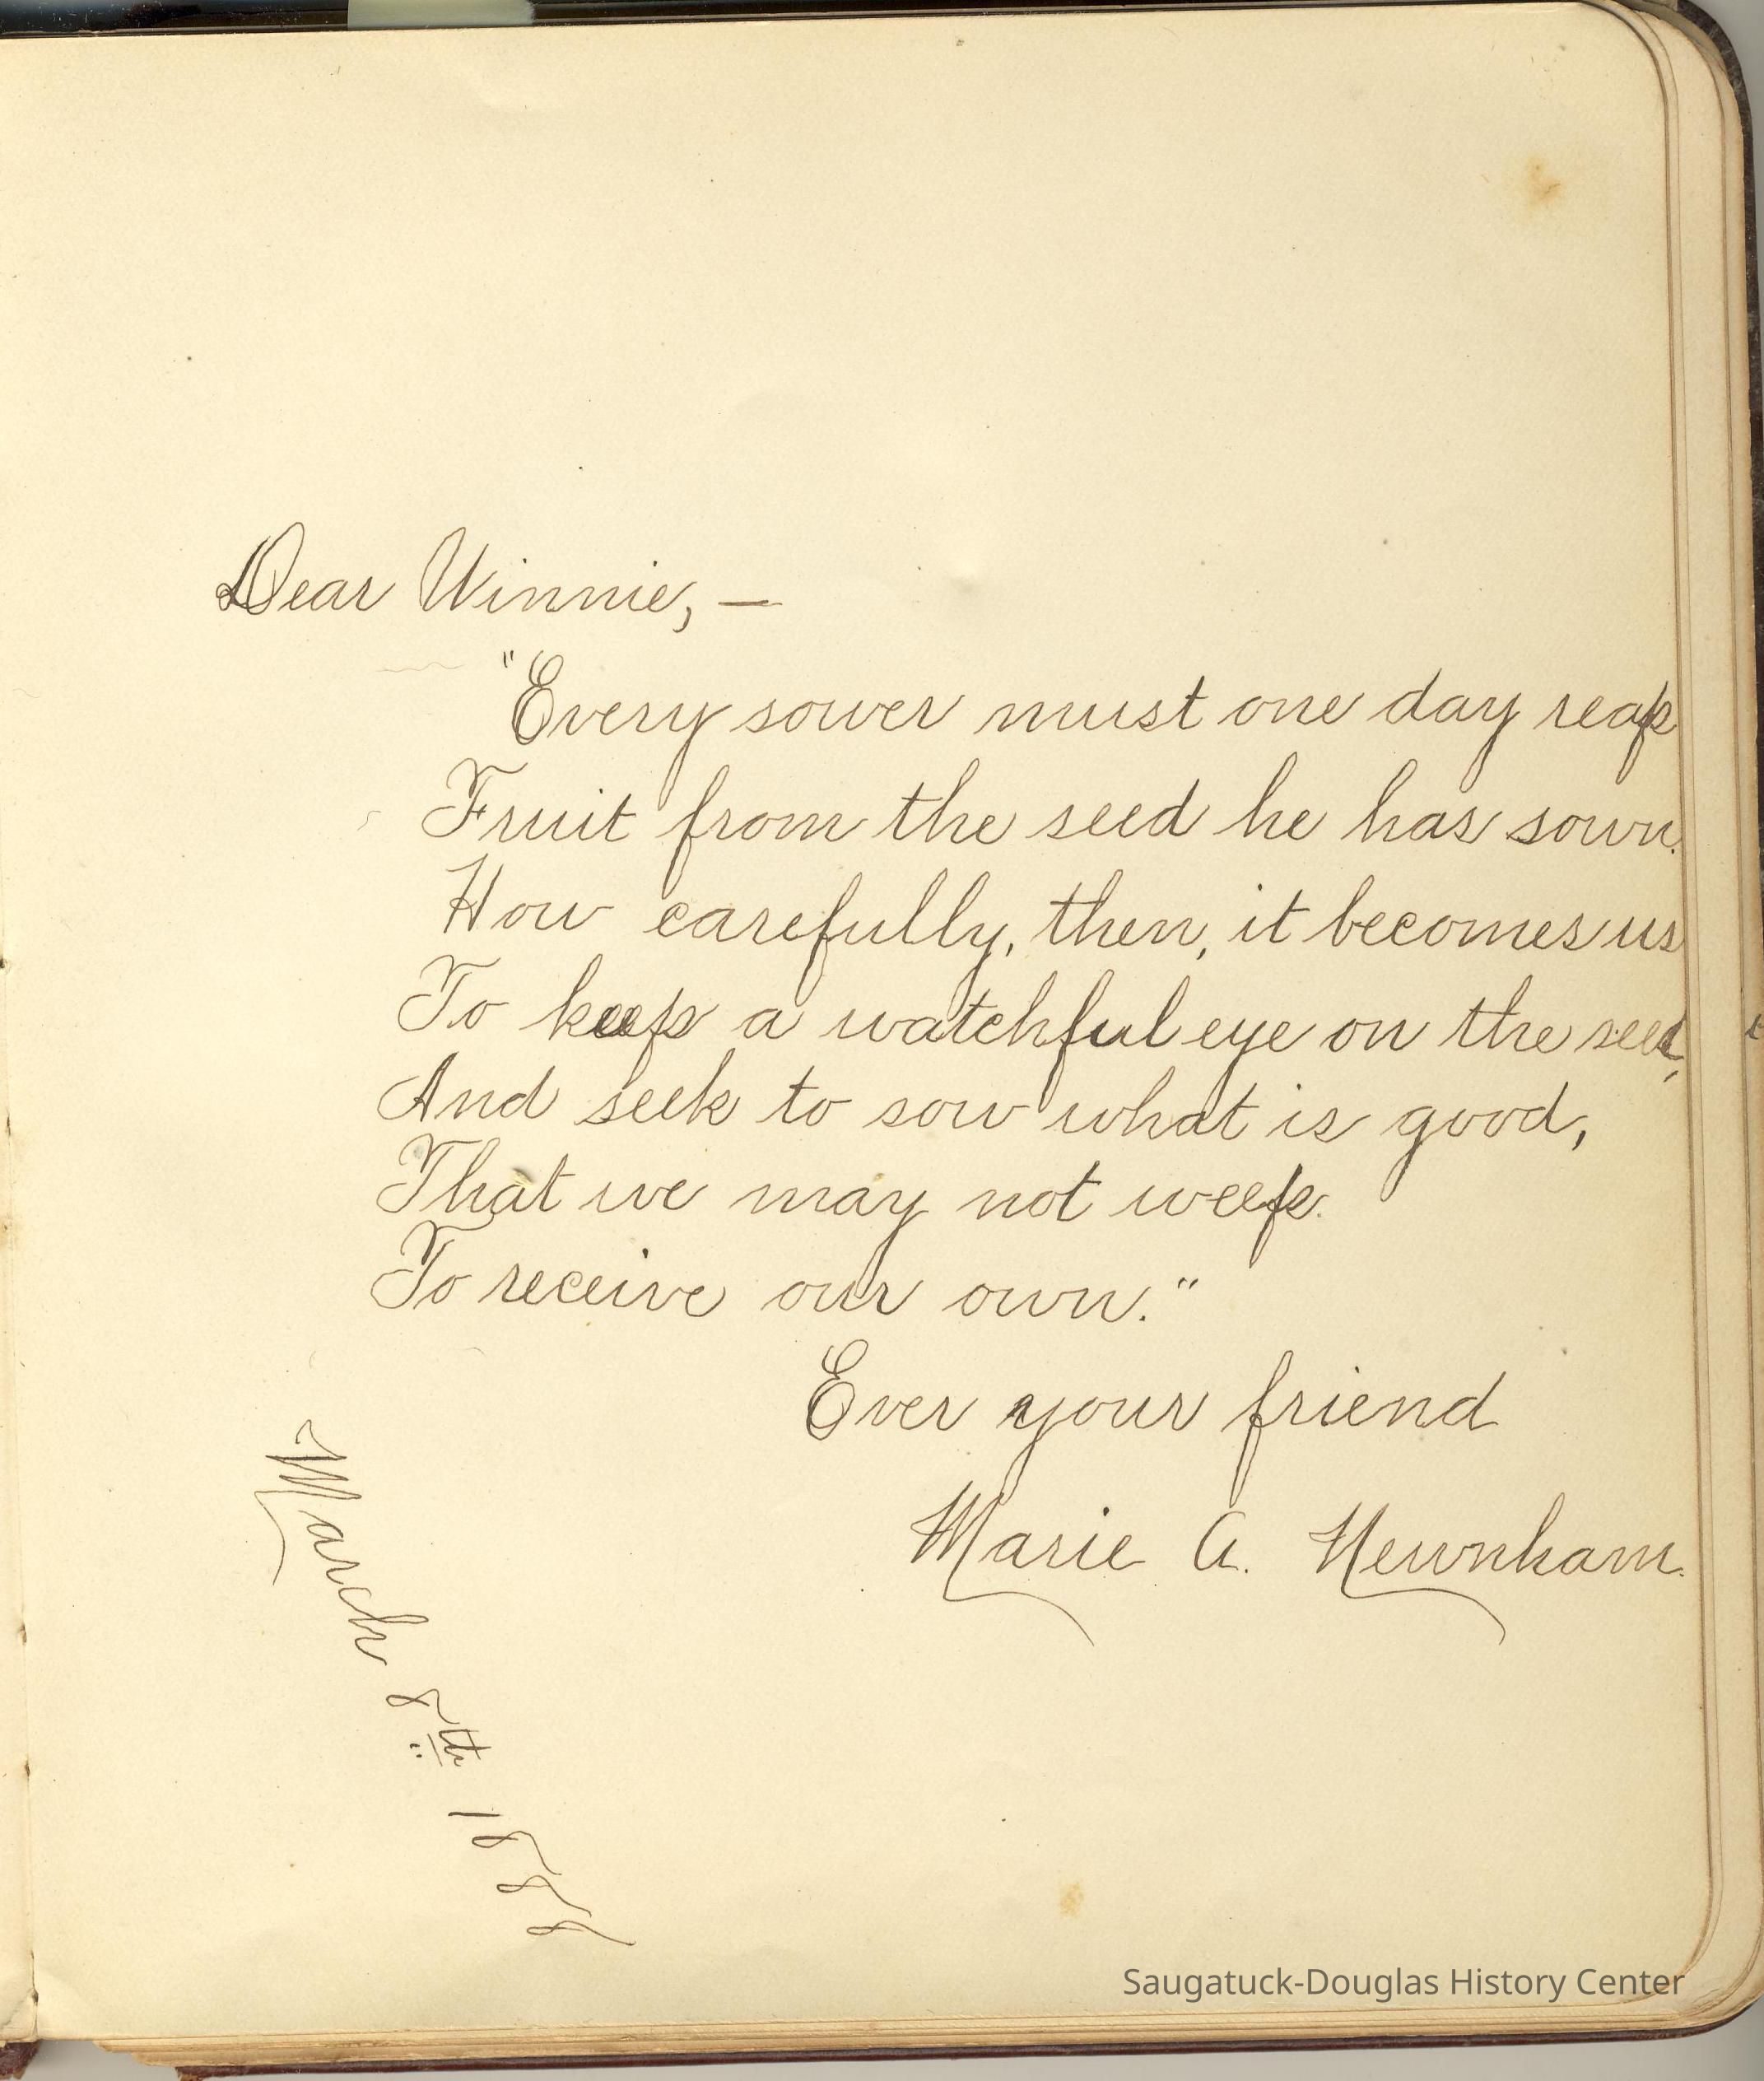 Dear Winnie, —
"Every sower must one day reap
Fruit from the seed he has sown.
How carefully, then, it becomes us
To keep a watchful eye on the seed,
And seek to sow what is good,
That we may not weep.
To receive our own."
Ever your friend
Marie A. Newnham.
March 8th 1888
Saugatuck-Douglas History Center